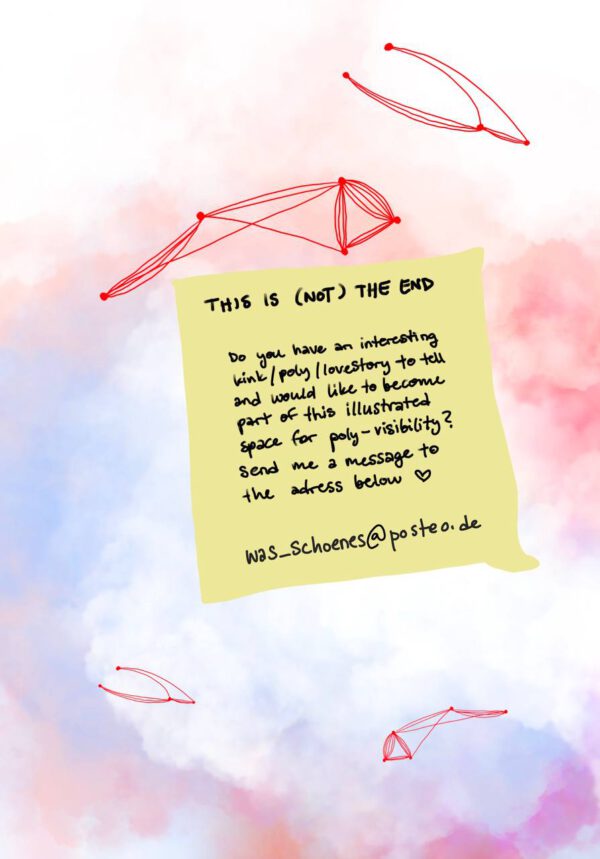 THIS IS (NOT) THE END
Do you have an interesting
kink/poly/lovestory to tell
and would like to become
part of this illustrated
space for poly-visibility?
send me a message to
the adress below ♡
was_schoenes@posteo.de